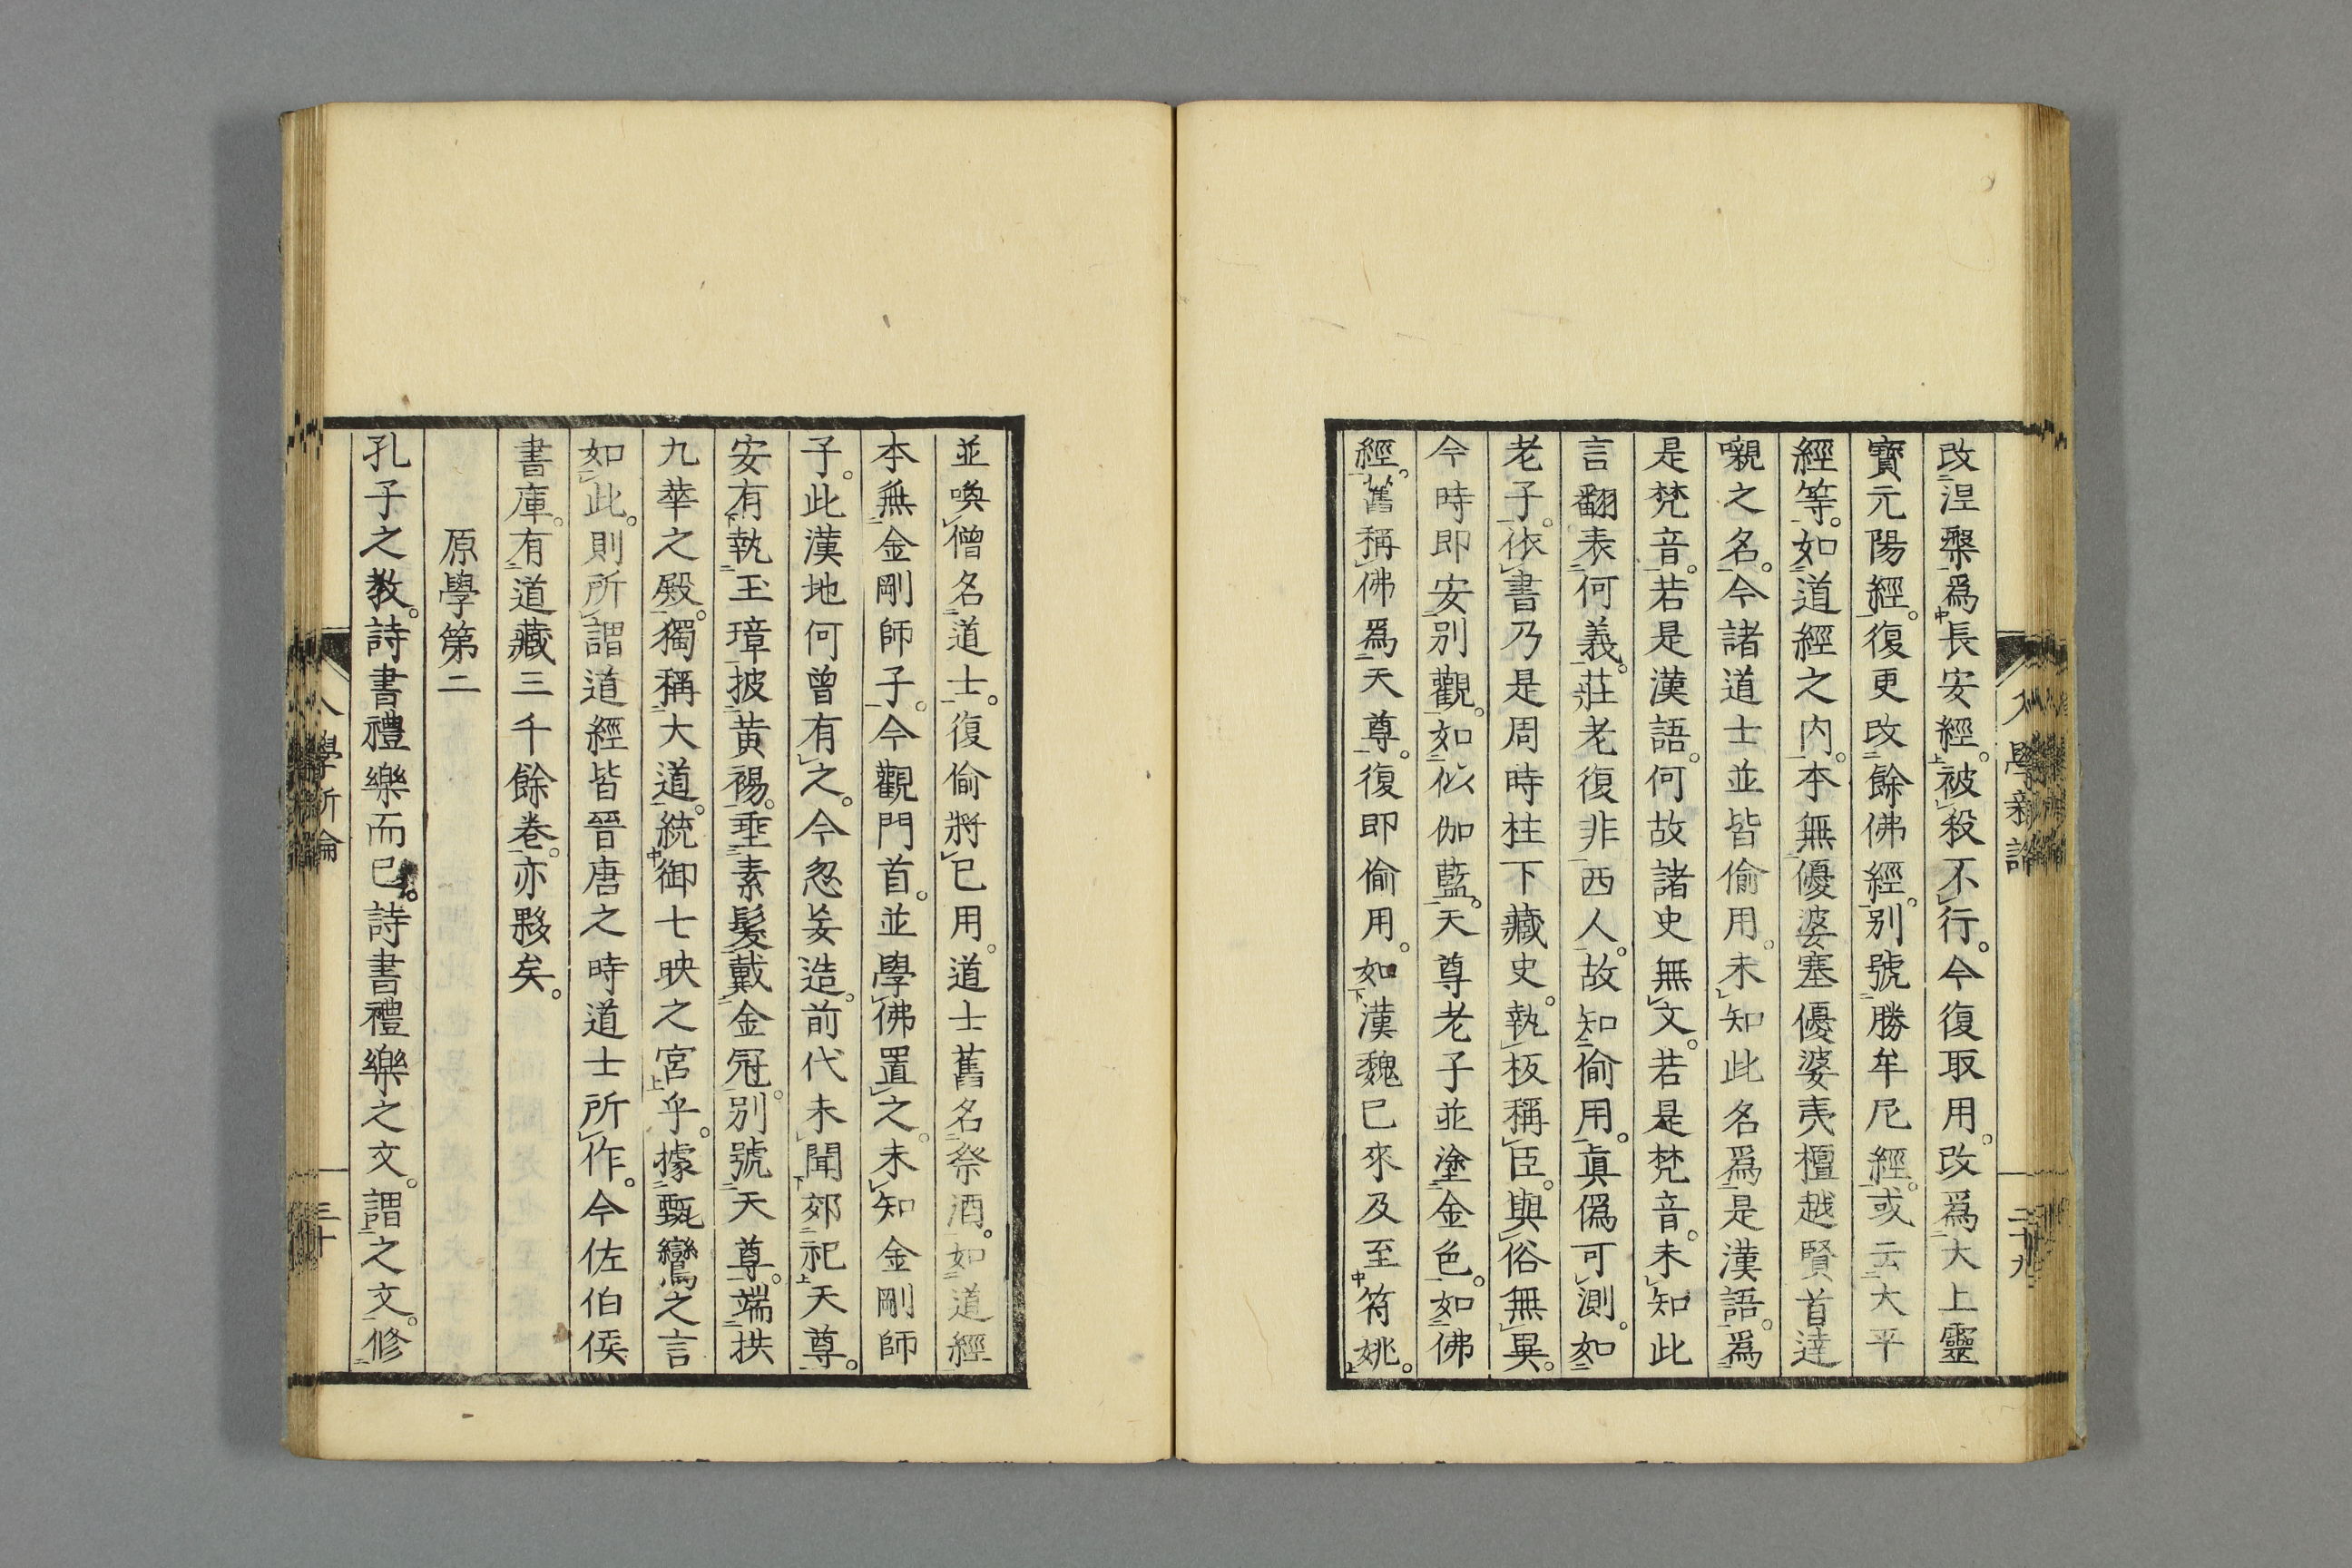 改涅槃爲長安經。被殺不行。今復取用。改爲大上靈
寶元陽經。復更改餘佛經。别號勝牟尼經。或云大平
經等。如道經之内。本無優婆塞優婆夷檀越賢首達
嚫之名。今諸道士並皆偷用。未知此名爲是漢語。爲
是梵音。若是漢語。何故諸史無文。若是梵音。未知此
言翻表何義。莊老復非西人。故知偷用。眞僞可測。如
老子。依書乃是周時柱下藏史。執板稱臣。與俗無異。
今時即安别觀。如似伽藍。天尊老子並塗金色。如佛
經。舊稱佛爲天尊。復即偷用。如漢魏已來及至符姚。
並喚僧名道士。復偷將已用。道士舊名祭酒。如道經
本無金剛師子。今觀門首。並學佛置之。未知金剛師
子。此漢地何曾有之。今忽妄造。前代未聞郊祀天尊。
安有執玉璋披黄裼。垂素髮戴金冠。别號天尊。端拱
九華之殿。獨稱大道。統御七映之宮乎。據甄鸞之言
如此。則所謂道經皆晉唐之時道士所作。今佐伯侯
書庫。有道藏三千餘卷。亦夥矣。
原學第二
孔子之教。詩書禮樂而已。詩書禮樂之文。謂之文。修
學新論
二十九
三十